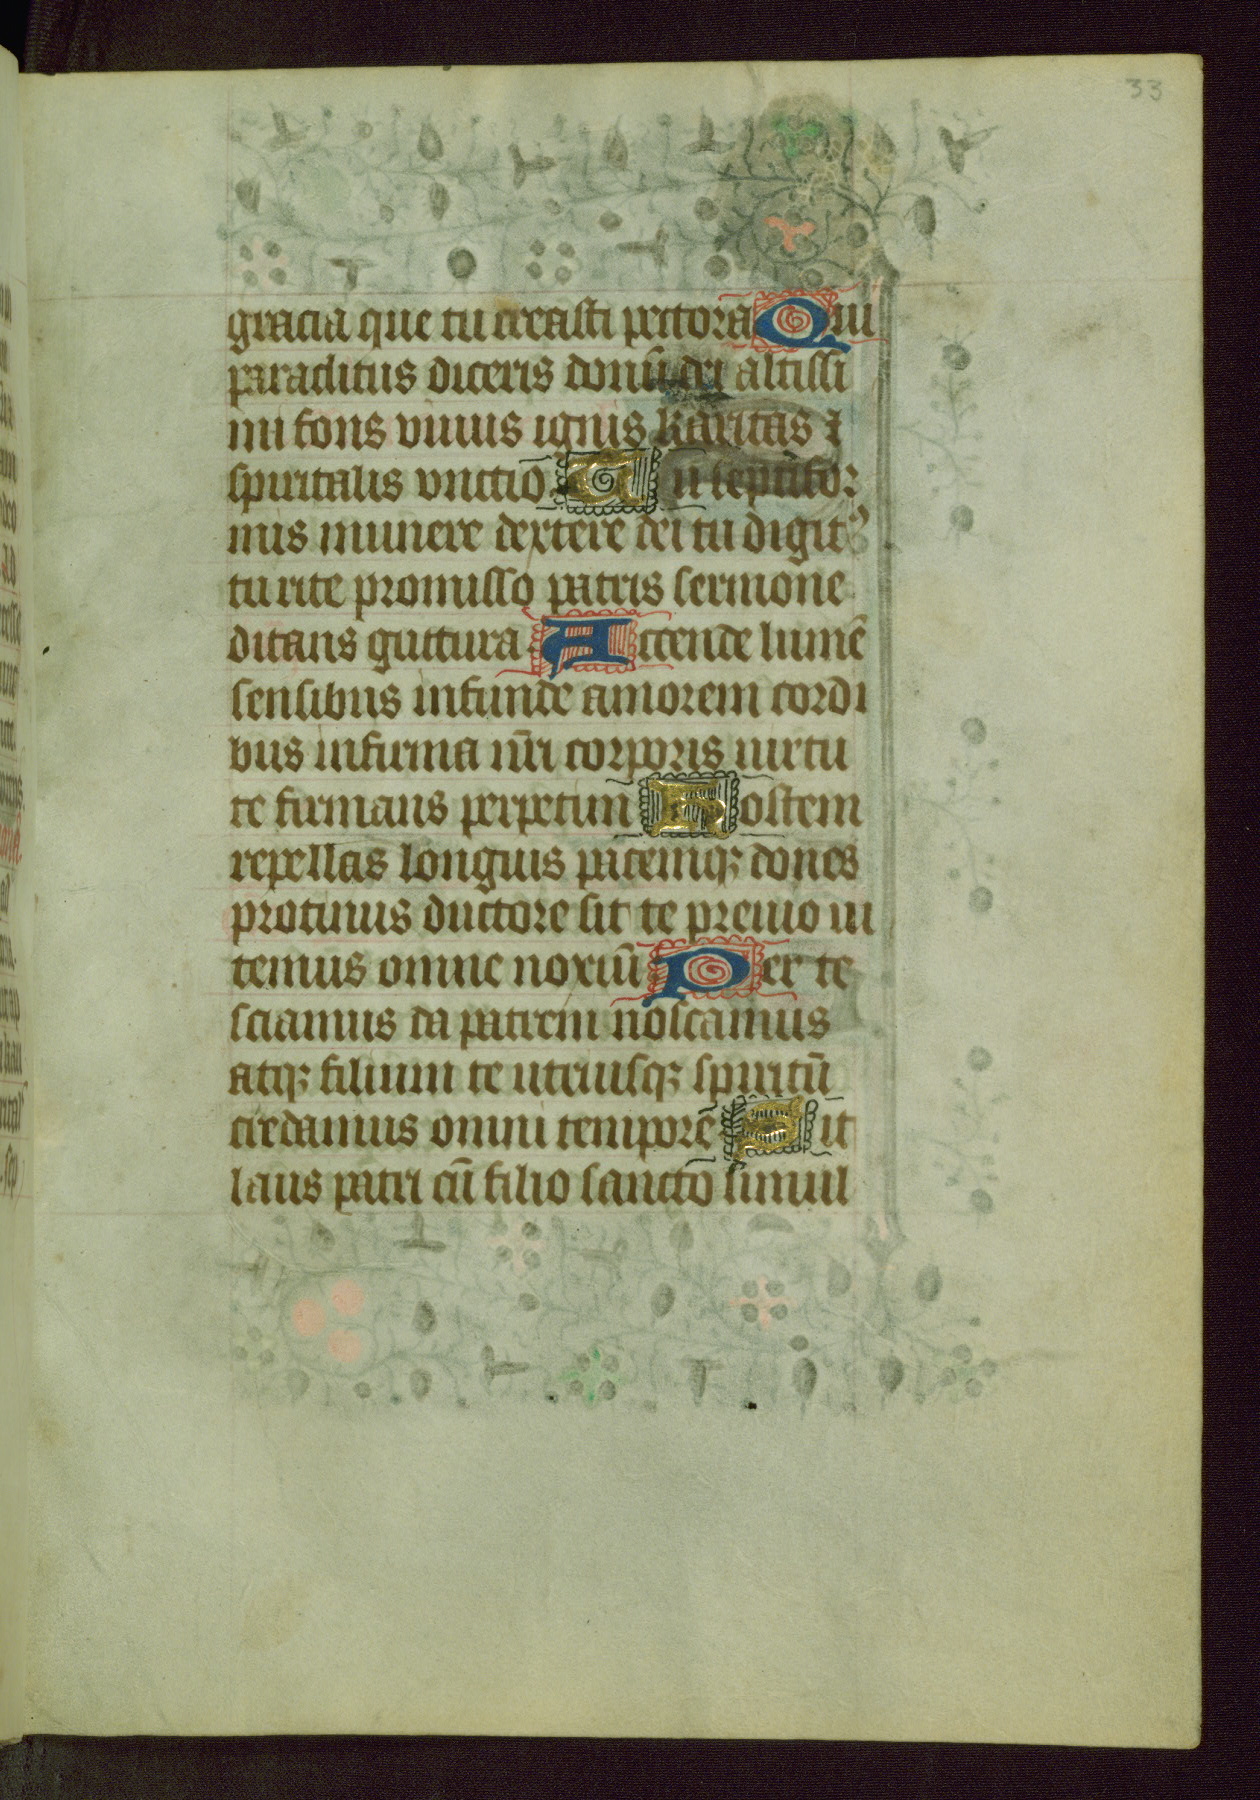 33
gracia que tu creasti pectora Qui
paraclitus diceris donū dei altissi
mi fons viuus ignis karitas ⁊
spiritalis vnctio Tu septifor
mis munere dextere dei tu digitꝰ
tu rite promisso patris sermone
ditans guttura Accende lumē
sensibus infunde amorem cordi
bus infirma nr̄i corporis uirtu
te firmans perpetim Hostem
repellas longius pacemqꝫ dones
protinus ductore sit te preuio ui
temus omne noxiū Per te
sciamus da patrem noscamus
atqꝫ filium te utriusqꝫ spiritū
credamus omni tempore Sit
laus patri cū filio sancto simul